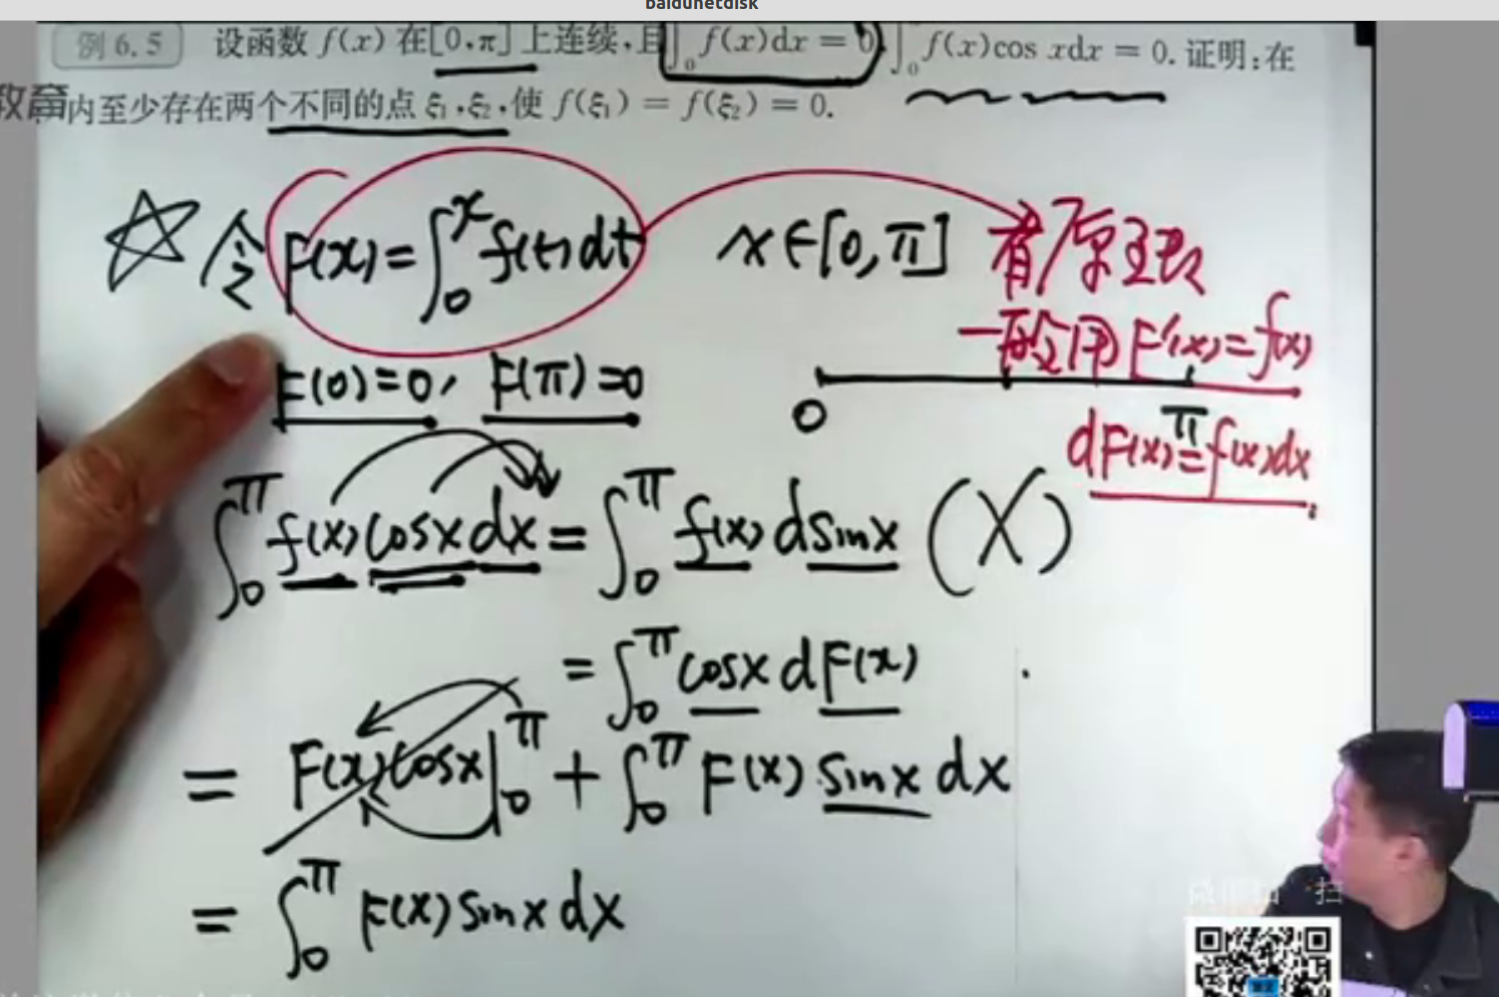 baidunetdisk
例 6.5 设函数 f(x) 在[0,π] 上连续,且∫₀ f(x)dx = 0, ∫₀ f(x)cos xdx = 0. 证明:在
教育 内至少存在两个不同的点 ξ₁,ξ₂,使 f(ξ₁) = f(ξ₂) = 0.
令 F(x)=∫₀ˣ f(t)dt x∈[0,π]
一般用 F'(x)=f(x)
F(0)=0, F(π)=0
0 π
dF(x)=f(x)dx
∫₀^π f(x)cosxdx=∫₀^π f(x)dsinx (X)
=∫₀^π cosxdF(x)
= F(x)cosx|₀^π + ∫₀^π F(x)sinxdx
= ∫₀^π F(x)sinxdx
扫